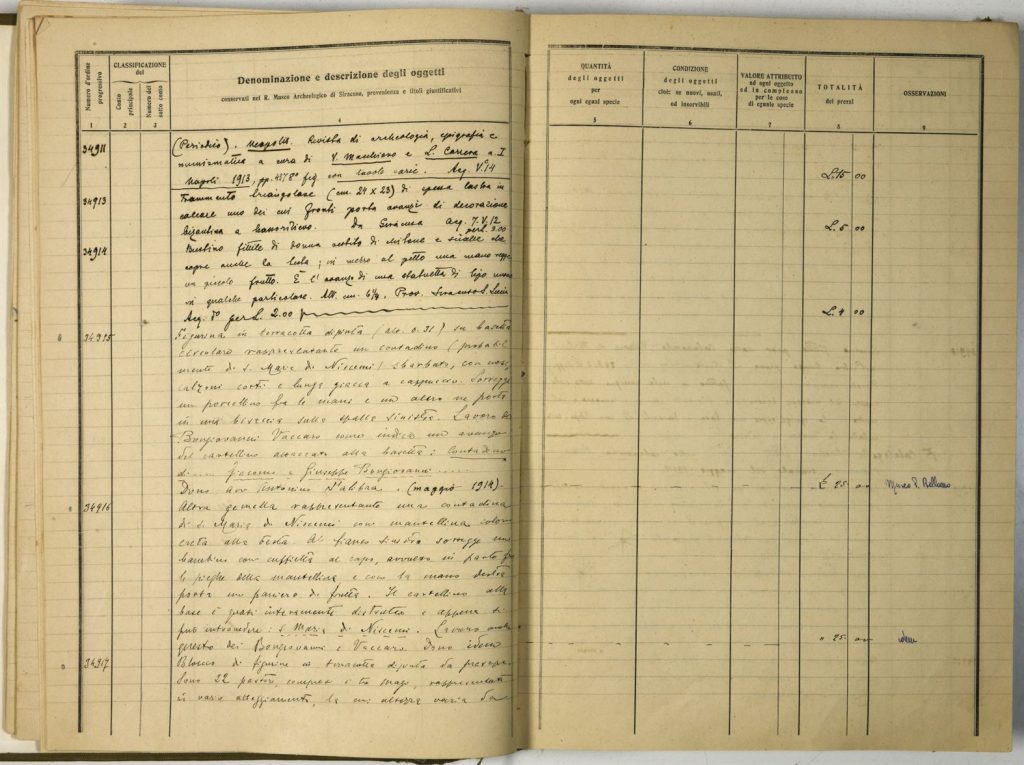 Numero d'ordine progressivo
CLASSIFICAZIONE del
Conto principale
Numero del sotto conto
Denominazione e descrizione degli oggetti
conservati nel R. Museo Archeologico di Siracusa, provenienza e titoli giustificativi
1 2 3 4
34911 (Periodico). Neapolis. Rivista di archeologia, epigrafia e
numismatica a cura di V. Macchioro e L. Correra a. I
Napoli 1913, pp. 457 8° fig. con tavole varie. Acq. V° 14
34913 Frammento triangolare (cm. 24 x 23) di spessa lastra in
calcare uno dei cui fronti porta avanzi di decorazione
bizantina a bassorilievo. Da Siracusa Acq. 7. V. 12
per L. 3.00
34914 Bustino fittile di donna vestita di chitone e scialle che
copre anche la testa; in mezzo al petto una mano regge
un piccolo frutto. È l'avanzo di una statuetta di tipo
in qualche particolare. Alt. cm. Prov. Siracusa S. Lucia
Acq. per L. 2.00
34915 Figurina in terracotta dipinta (alt. 0.31) su basetta
circolare rappresentante un contadino (probabil
mente di S. Maria di Niscemi) sbarbato, con
calzoni corti e lunga giacca a cappuccio. Sorregge
un porcellino fra le mani e un altro ne porta
in una bisaccia sulla spalla sinistra. Lavoro dei
Bongiovanni Vaccaro come indica un avanzo
del cartellino attaccato alla basetta: contadino
di ..... Giacomo e Giuseppe Bongiovanni .....
Dono Antonino D'Alibras. (maggio 1914)
34916 Altra gemella rappresentante una contadina
di S. Maria di Niscemi con mantellina
alla testa. Al fianco sinistro sorregge un
bambino con cuffietta al capo, avvolto in parte fra
le pieghe della mantellina, e con la mano destra
porta un paniere di frutta. Il cartellino alla
base è quasi interamente distrutto e appena si
può intravedere: S. Maria di Niscemi. Lavoro anche
questo dei Bongiovanni e Vaccaro. Dono idem
34917 Blocco di figurine in terracotta dipinta da presepe.
Sono 22 pastori, compresi i tre magi, rappresentati
in vario atteggiamento, la cui altezza varia da
QUANTITÀ degli oggetti per ogni egual specie
CONDIZIONE degli oggetti cioè: se nuovi, usati, ed inservibili
VALORE ATTRIBUITO ad ogni oggetto ed in complesso per le cose di eguale specie
TOTALITÀ dei prezzi
OSSERVAZIONI
5 6 7 8 9
L. 15 00
L. 5 00
L. 4 00
£ 25 00 Museo P. Bellomo
" 25 00 idem